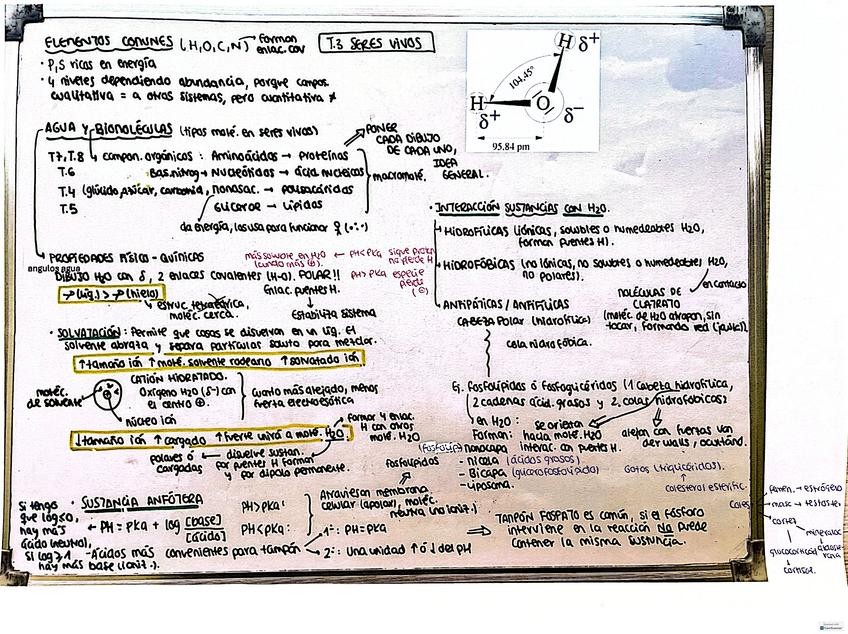 ELEMENTOS COMUNES (H,O,C,N) → forman enlac. cov
T.3 SERES VIVOS
• P,S ricas en energía
• 4 niveles dependiendo abundancia, porque compos.
cualitativa = a otros sistemas, pero cuantitativa ≠
H δ+
104.45°
H
δ+
O
δ−
95.84 pm
AGUA y BIOMOLÉCULAS (tipos molé. en seres vivos)
PONER
CADA DIBUJO
DE CADA UNO,
IDEA
GENERAL.
T7,T.8 compon. orgánicos : Aminoácidos → Proteínas
T.6 Bas.nitrog → Nucleótidos → ácid. nucleicos
macromolé.
T.4 (glúcido, azúcar, carbohid, monosac. → polisacáridos
T.5 Glicerol → Lípidos
da energía, las usa para funcionar
PROPIEDADES FÍSICO - QUÍMICAS
más soluble en H2O ← PH<PKa
no pierde H
angulos agua
DIBUJO H2O con δ, 2 enlaces covalentes (H-O). POLAR!!
PH>PKa especie
pierde
(⊖)
ρ(líq.) > ρ(hielo)
Enlac. puentes H.
estruc tetraédrica,
moléc. cerca.
Estabiliza sistema
• SOLVATACIÓN: Permite que cosas se disuelvan en un líq. El
solvente abraza y separa partículas soluto para mezclar.
↑tamaño ión ↑molé. solvente rodeano ↑solvatado ión
moléc.
de solvente
CATIÓN HIDRATADO.
Oxígeno H2O (δ-) con
el centro ⊕.
Cuanto más alejado, menos
fuerza electrostática
núcleo ión
↓tamaño ión ↑cargado ↑fuerte unirá a molé. H2O.
formar 4 enlac.
H con otros
molé. H2O
polares ó
cargadas
disuelve sustan.
por puentes H forman
y por dipolo permanente.
fosfolípidos
• INTERACCIÓN SUSTANCIAS CON H2O.
HIDROFÍLICAS (iónicas, solubles o humedeables H2O,
forman puentes H).
HIDROFÓBICAS (no iónicas, no solubles o humedeables H2O,
no polares).
en contacto
MOLÉCULAS DE
CLATRATO
(moléc de H2O atrapan, sin
tocar, formando red (jaula)).
ANTIPÁTICAS / ANFIFÍLICAS
CABEZA Polar (hidrofílica)
cola hidrofóbica.
Ej. Fosfolípidos ó fosfoglicéridos (1 cabeza hidrofílica,
2 cadenas ácid. grasos y 2 colas hidrofóbicas)
en H2O:
Forman:
se orietan
hacia molé. H2O
interac. con puentes H.
alejan con fuerzas van
der walls, ocultánd.
(fosfolíp) monocapa
- micela (ácidos grasos)
- Bicapa (glicerofosfolípido)
- Liposoma.
Gotas (triglicéridos).
colesteros esterific.
• SUSTANCIA ANFÓTERA
PH>PKa:
PH<PKa:
Atraviesan membrana
celular (apolar), moléc.
neutra (no ionit.)
Si tengo
que log≤0,
hay más
ácido neutral,
si log≥1
hay más base (ionit.).
← PH = PKa + log [base]
[ácido]
- Ácidos más convenientes para tampón
1º: PH=PKa
2º: Una unidad ↑ó↓ del PH
TANPÓN FOSFATO es común, si el fósforo
interviene en la reacción NO puede
contener la misma SUSTANCIA.
Coles
femen. → estrógeno
masc → testoste.
cortex
mineraloc
glucocorticoid
aldoste-
rona
cortisol.
CamScanner